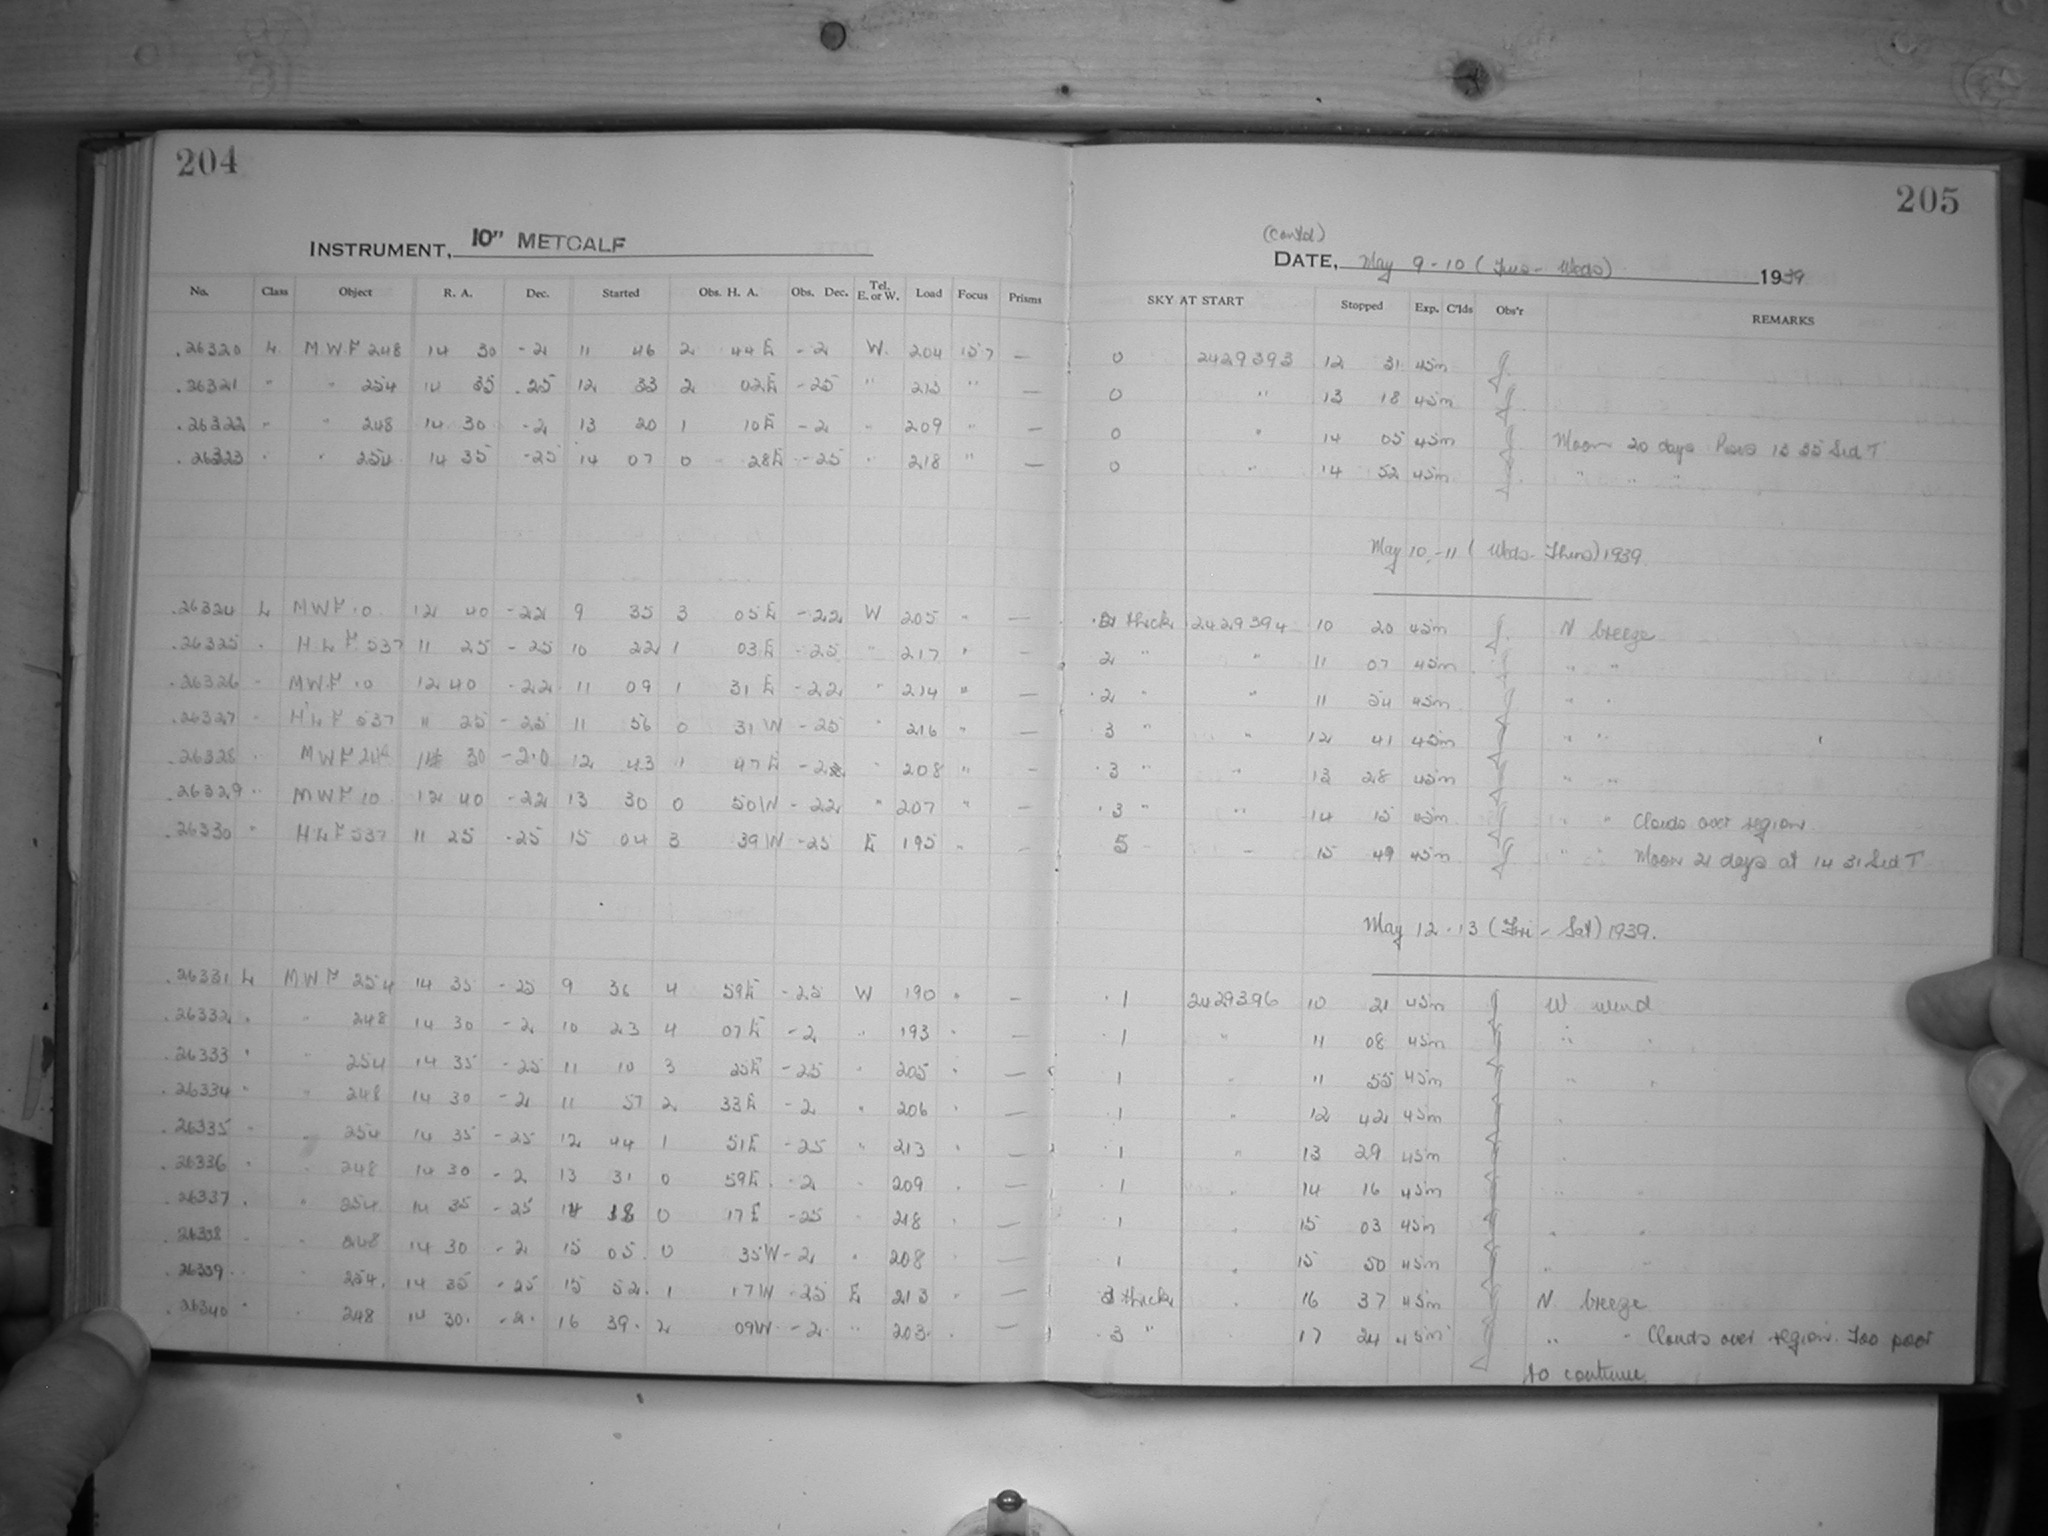 204
INSTRUMENT, 10" METCALF
No. Class Object R. A. Dec. Started Obs. H. A. Obs. Dec. Tel. E. or W. Load Focus Prisms
.26320 L. MWF 248 14 30 -2 11 46 2 44E -2 W. 204 157 —
.26321 " " 254 14 35 -25 12 33 2 02E -25 " 213 " —
.26322 " " 248 14 30 -2 13 20 1 10E -2 " 209 " —
.26323 " " 254 14 35 -25 14 07 0 28E -25 " 218 " —
.26324 L MWF 10 12 40 -22 9 35 3 05E -22 W 205 " —
.26325 " HLF 537 11 25 -25 10 22 1 03E -25 " 217 " —
.26326 " MWF 10 12 40 -22 11 09 1 31E -22 " 214 " —
.26327 " HLF 537 11 25 -25 11 56 0 31W -25 " 216 " —
.26328 " MWF 14 30 12 43 1 47E " 208 " —
.26329 " MWF 10 12 40 -22 13 30 0 50W -22 " 207 " —
.26330 " HLF 537 11 25 -25 15 04 3 39W -25 E 195 " —
.26331 L MWF 254 14 35 -25 9 36 4 59E -25 W 190 " —
.26332 " " 248 14 30 -2 10 23 4 07E -2 " 193 "
.26333 " " 254 14 35 -25 11 10 3 25E -25 " 205 " —
.26334 " " 248 14 30 -2 11 57 2 33E -2 " 206 " —
.26335 " " 254 14 35 -25 12 44 1 51E -25 " 213 " —
.26336 " " 248 14 30 -2 13 31 0 59E -2 " 209 " —
.26337 " " 254 14 35 -25 14 18 0 17E -25 " 218 " —
.26338 " 248 14 30 -2 15 05 0 35W -2 " 208 " —
.26339 " " 254 14 35 -25 15 52 1 17W -25 E 213 " —
.26340 " " 248 14 30 -2 16 39 2 09W -2 " 203 " —
205
(Contd)
DATE, May 9-10 (Tues - Weds) 1939
SKY AT START Stopped Exp. C'lds Obs'r REMARKS
0 2429393 12 31 45m J.
0 " 13 18 45m J.
0 " 14 05 45m J. Moon 20 days Rises 13 35 Sid T
0 " 14 52 45m J. " " "
May 10-11 (Weds - Thurs) 1939
thick 2429394 10 20 45m J. N breeze
2 " " 11 07 45m J. " "
2 " " 11 54 45m " "
3 " " 12 41 45m " "
3 " " 13 28 45m " "
3 " " 14 15 45m " " Clouds over region
5 " 15 49 45m " " Moon 21 days at 14 31 Sid T
May 12-13 (Fri - Sat) 1939.
1 2429396 10 21 45m J W wind
1 " 11 08 45m " "
1 " 11 55 45m " "
1 " 12 42 45m "
1 " 13 29 45m "
1 " 14 16 45m " "
1 " 15 03 45m " "
1 " 15 50 45m " "
thick " 16 37 45m N. breeze
3 " 17 24 45m " " Clouds over region. Too poor
to continue